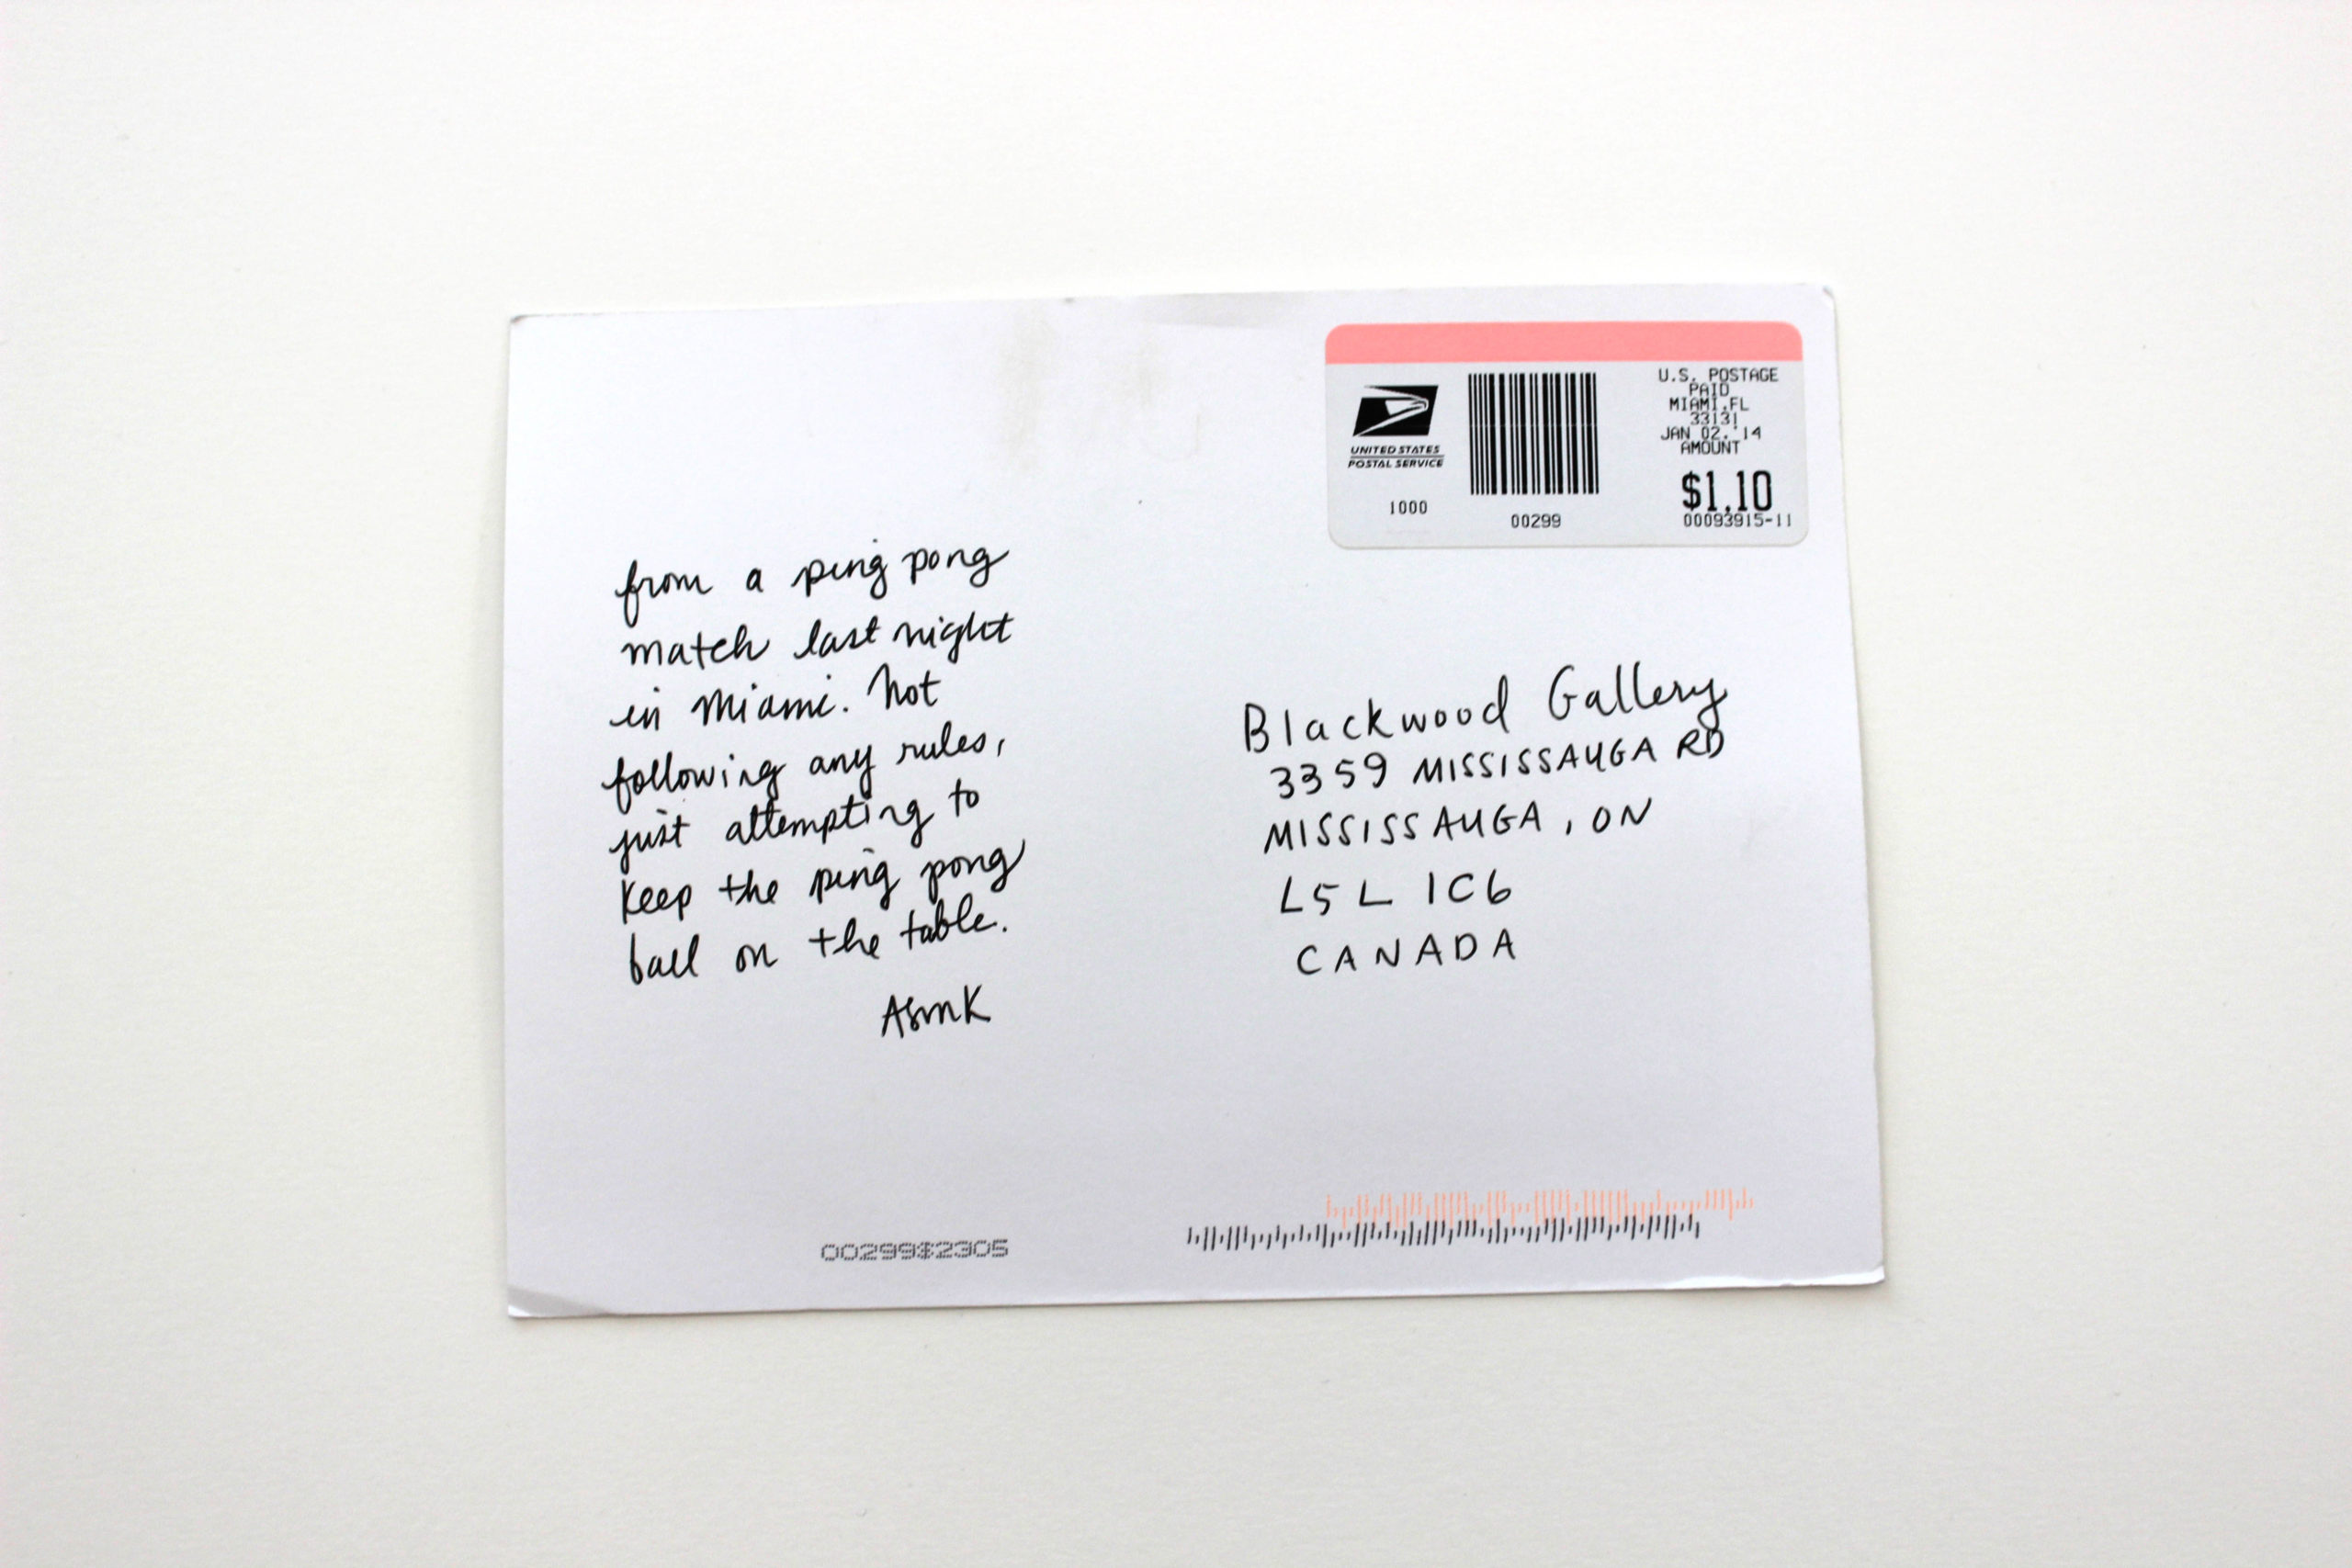 from a ping pong
match last night
in Miami. Not
following any rules,
just attempting to
keep the ping pong
ball on the table.
ASmK
UNITED STATES
POSTAL SERVICE
1000
00299
U.S. POSTAGE
PAID
MIAMI,FL
33131
JAN 02, '14
AMOUNT
$1.10
00093915-11
Blackwood Gallery
3359 MISSISSAUGA RD
MISSISSAUGA, ON
L5L 1C6
CANADA
00299$2305